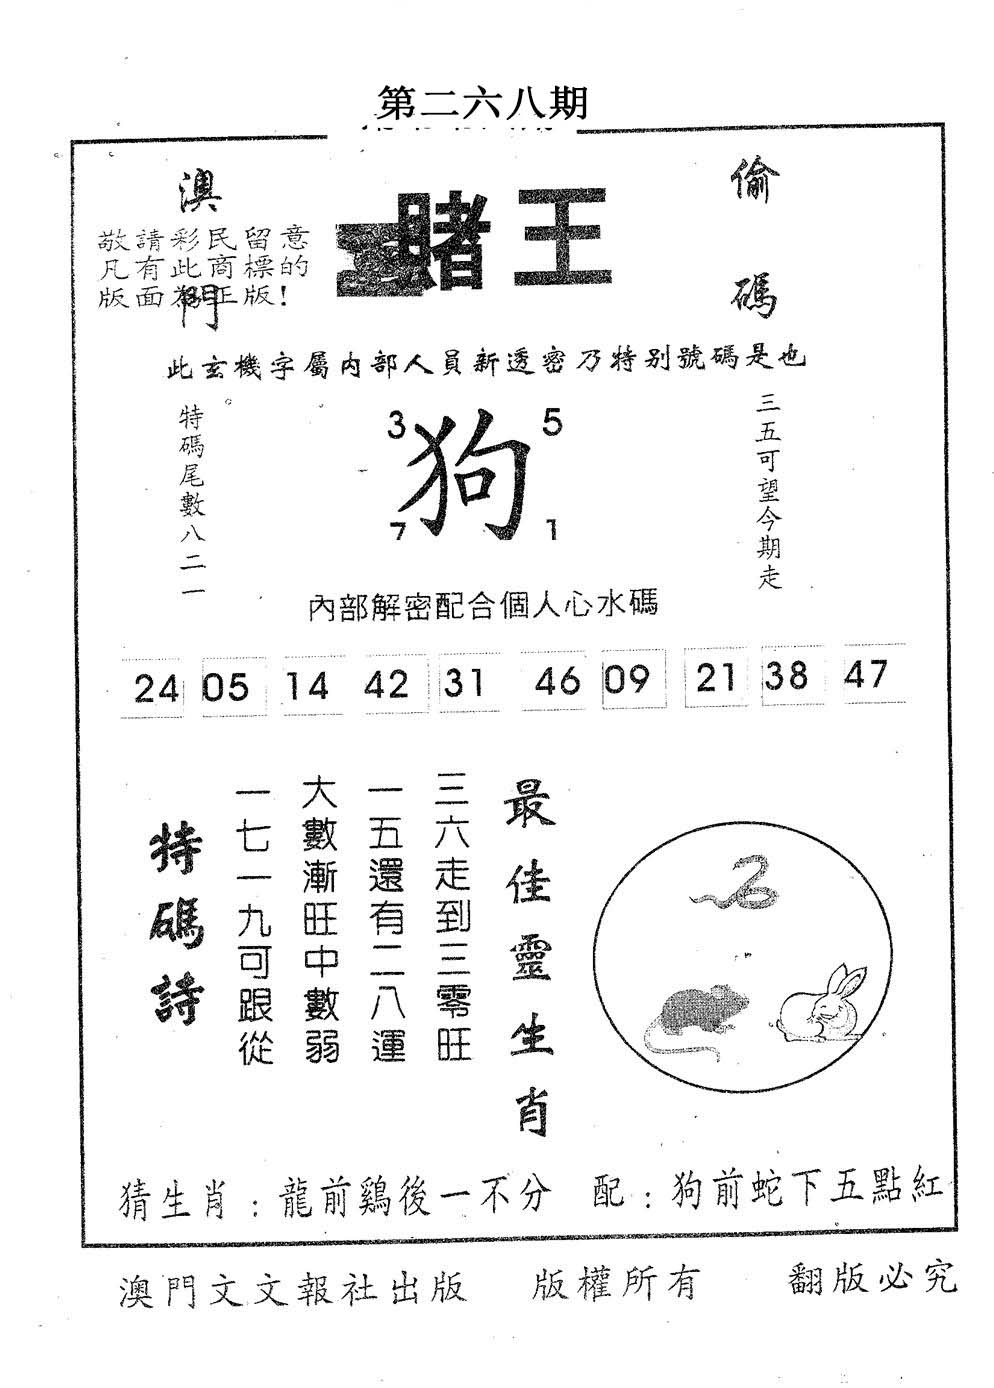 第二六八期
澳門
賭王
偷碼
敬請彩民留意
凡有此商標的
版面為正版！
此玄機字屬內部人員新透密乃特别號碼是也
特碼尾數八二一
3
5
狗
7
1
三五可望今期走
內部解密配合個人心水碼
24 05 14 42 31 46 09 21 38 47
最佳靈生肖
三六走到三零旺
一五還有二八運
大數漸旺中數弱
一七一九可跟從
特碼詩
猜生肖：龍前鷄後一不分 配：狗前蛇下五點紅
澳門文文報社出版 版權所有 翻版必究